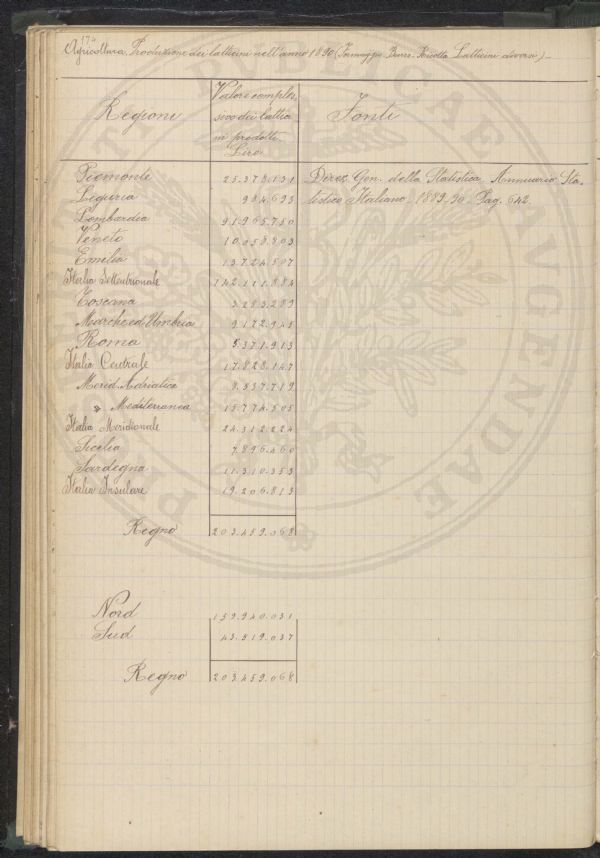 174
Agricoltura. Produzione dei latticini nell'anno 1890 (Formaggio. Burro. Ricotta. Latticini diversi) -
Regioni
Valore comples
sivo dei lattici
ni prodotti
Lire
Fonti
Piemonte 25.378.131 Direz. Gen. della Statistica. Annuario Sta-
Liguria 984.693 tistico Italiano. 1889-90. Pag. 642.
Lombardia 91.965.750
Veneto 10.058.803
Emilia 13.724.507
Italia Settentrionale 142.111.884
Toscana 3.283.289
Marche ed Umbria 9.172.945
Roma 5.371.913
Italia Centrale 17.828.147
Merid. Adriatica 8.537.719
" Mediterranea 15.774.505
Italia Meridionale 24.312.224
Sicilia 7.896.460
Sardegna 11.310.353
Italia Insulare 19.206.813
Regno 203.459.068
Nord 159.940.031
Sud 43.519.037
Regno 203.459.068